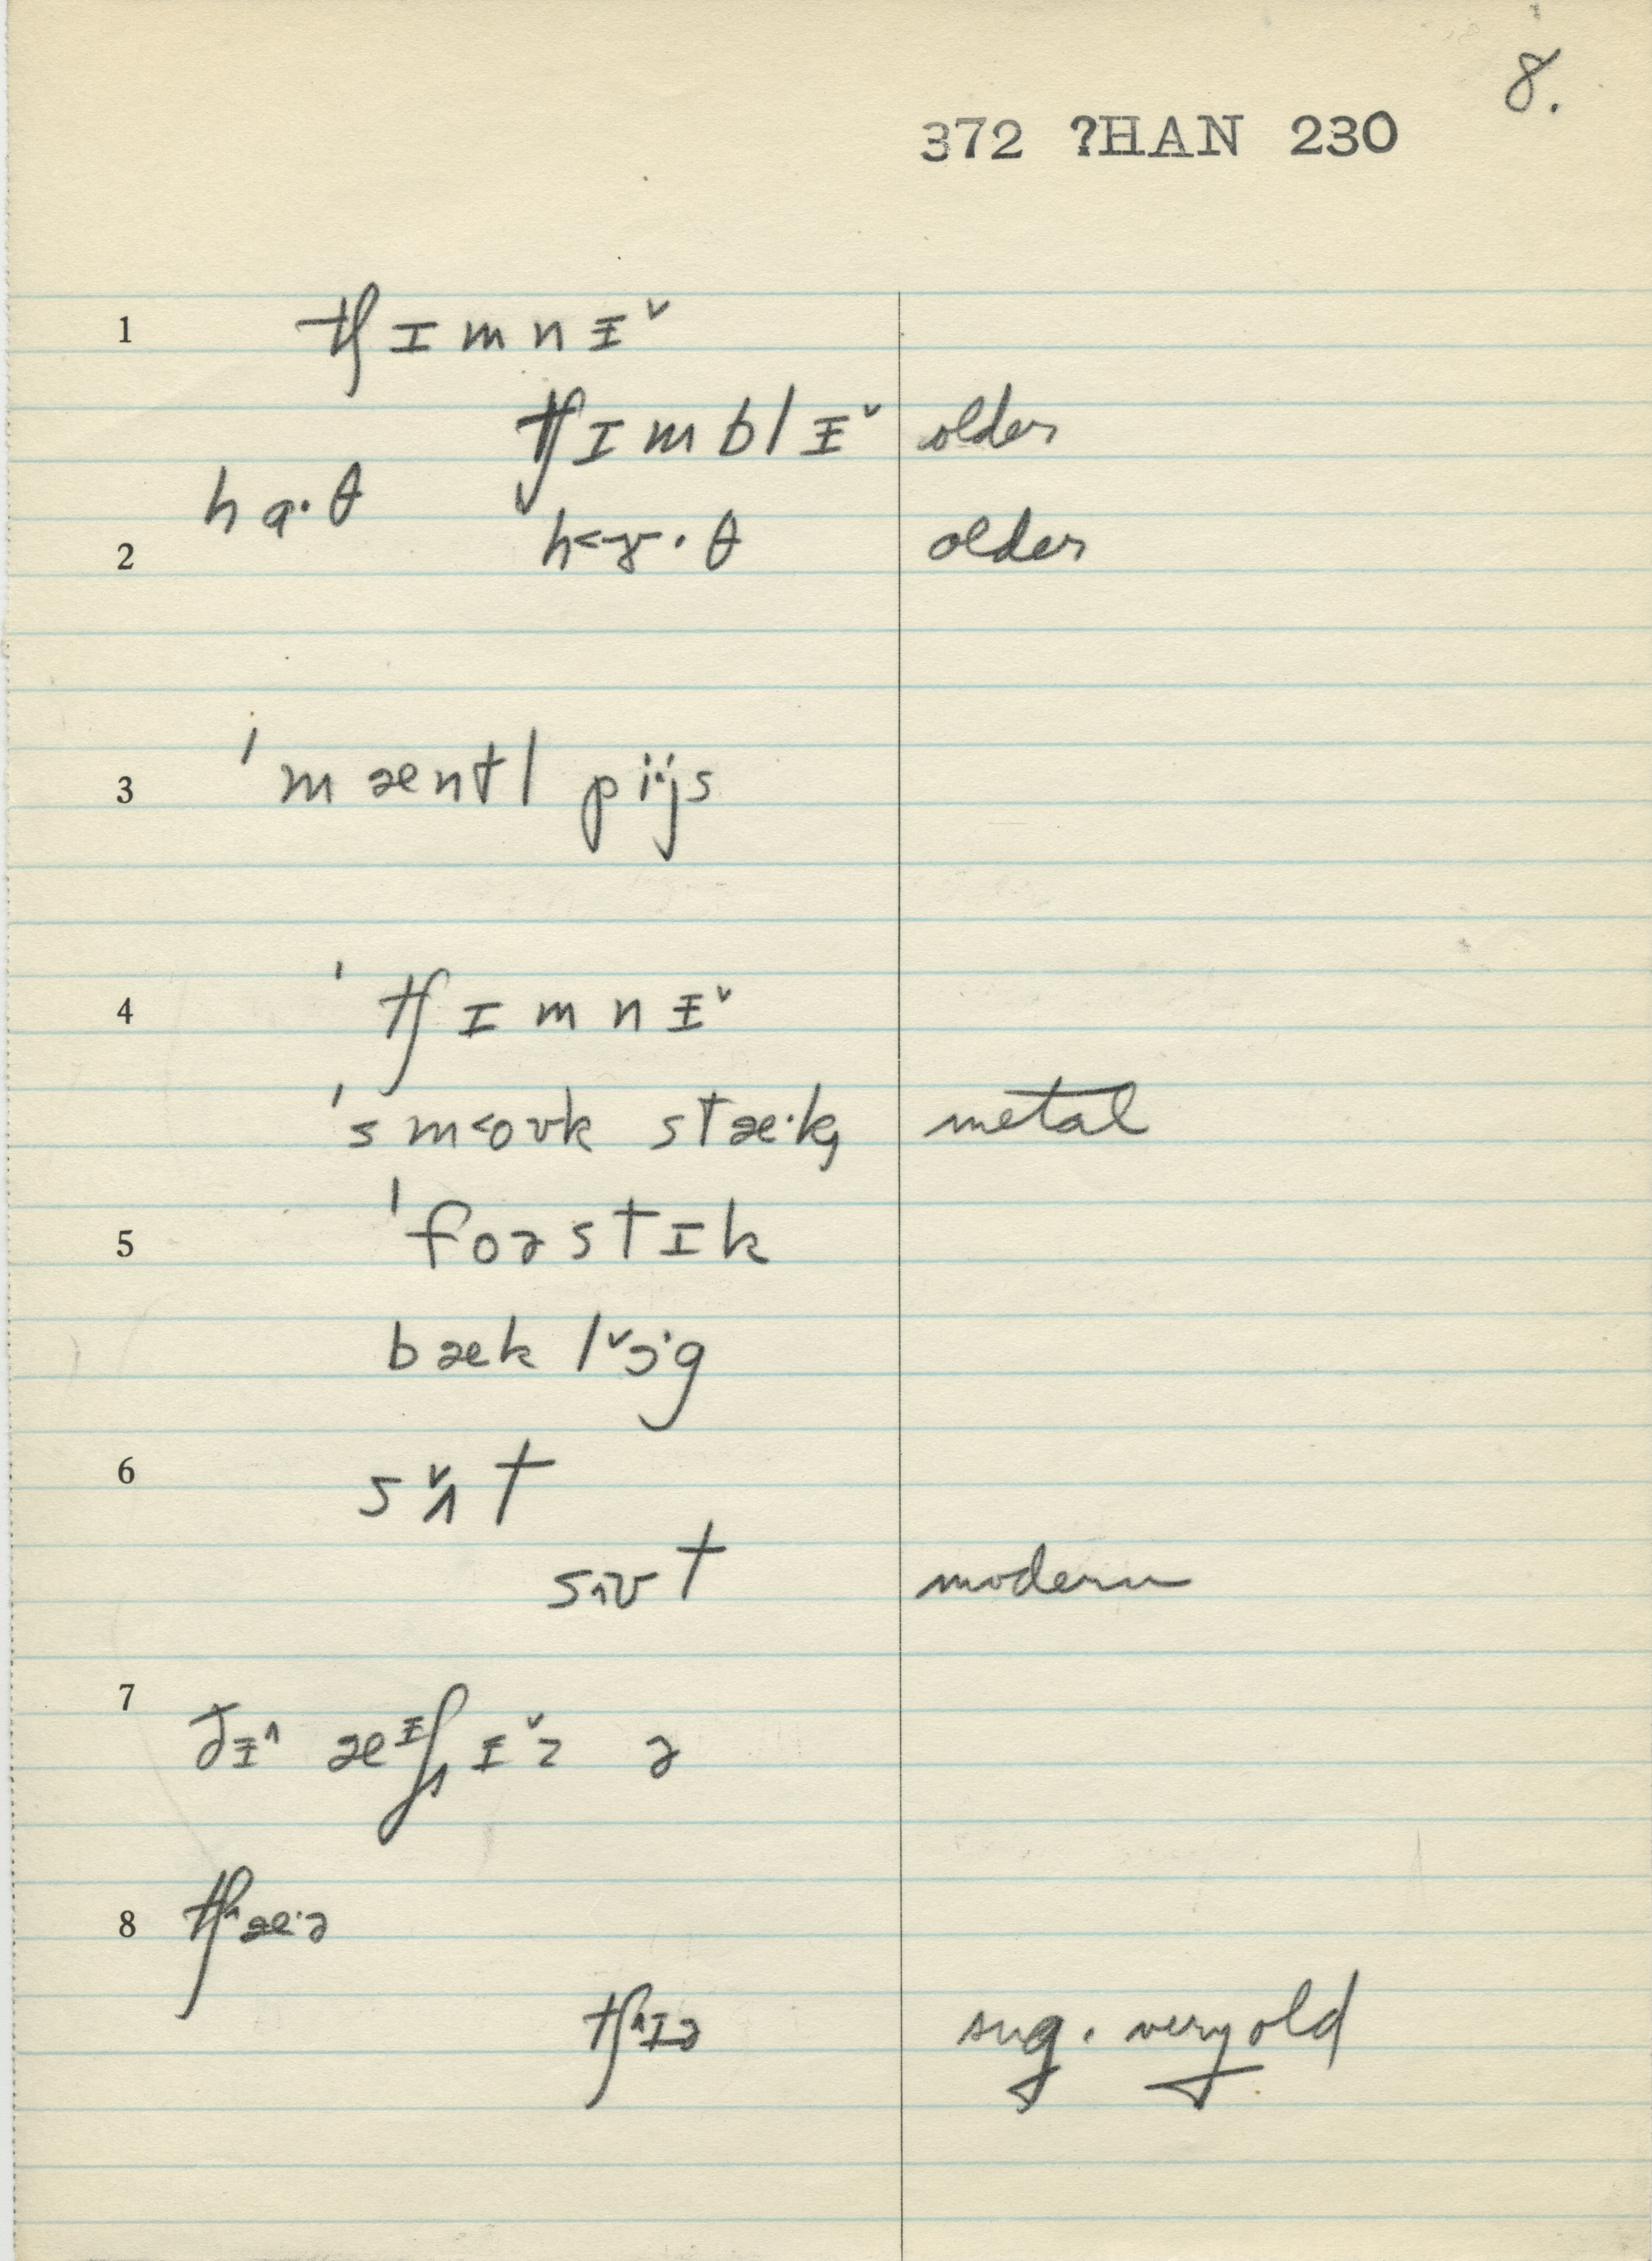 8.
372 ?HAN 230
1 tʃɪmnɨ˅
tʃɪmblɨ˅ older
hɑ·θ
2 h˂ɤ·θ older
3 ˈmæntl pi·js
4 ˈtʃɪmnɨ˅
ˈsm˂oʊk stæ·k, metal
5 ˈfoɚstɪk
bæk l˅ɔ·g
6 s˅ʌt
s˄ʊt modern
7 ðɨ˄ æᵻʃ˄ɨ˅z ɚ
8 tʃ˄æ·ɚ
tʃ˄ɪɚ sug. very old